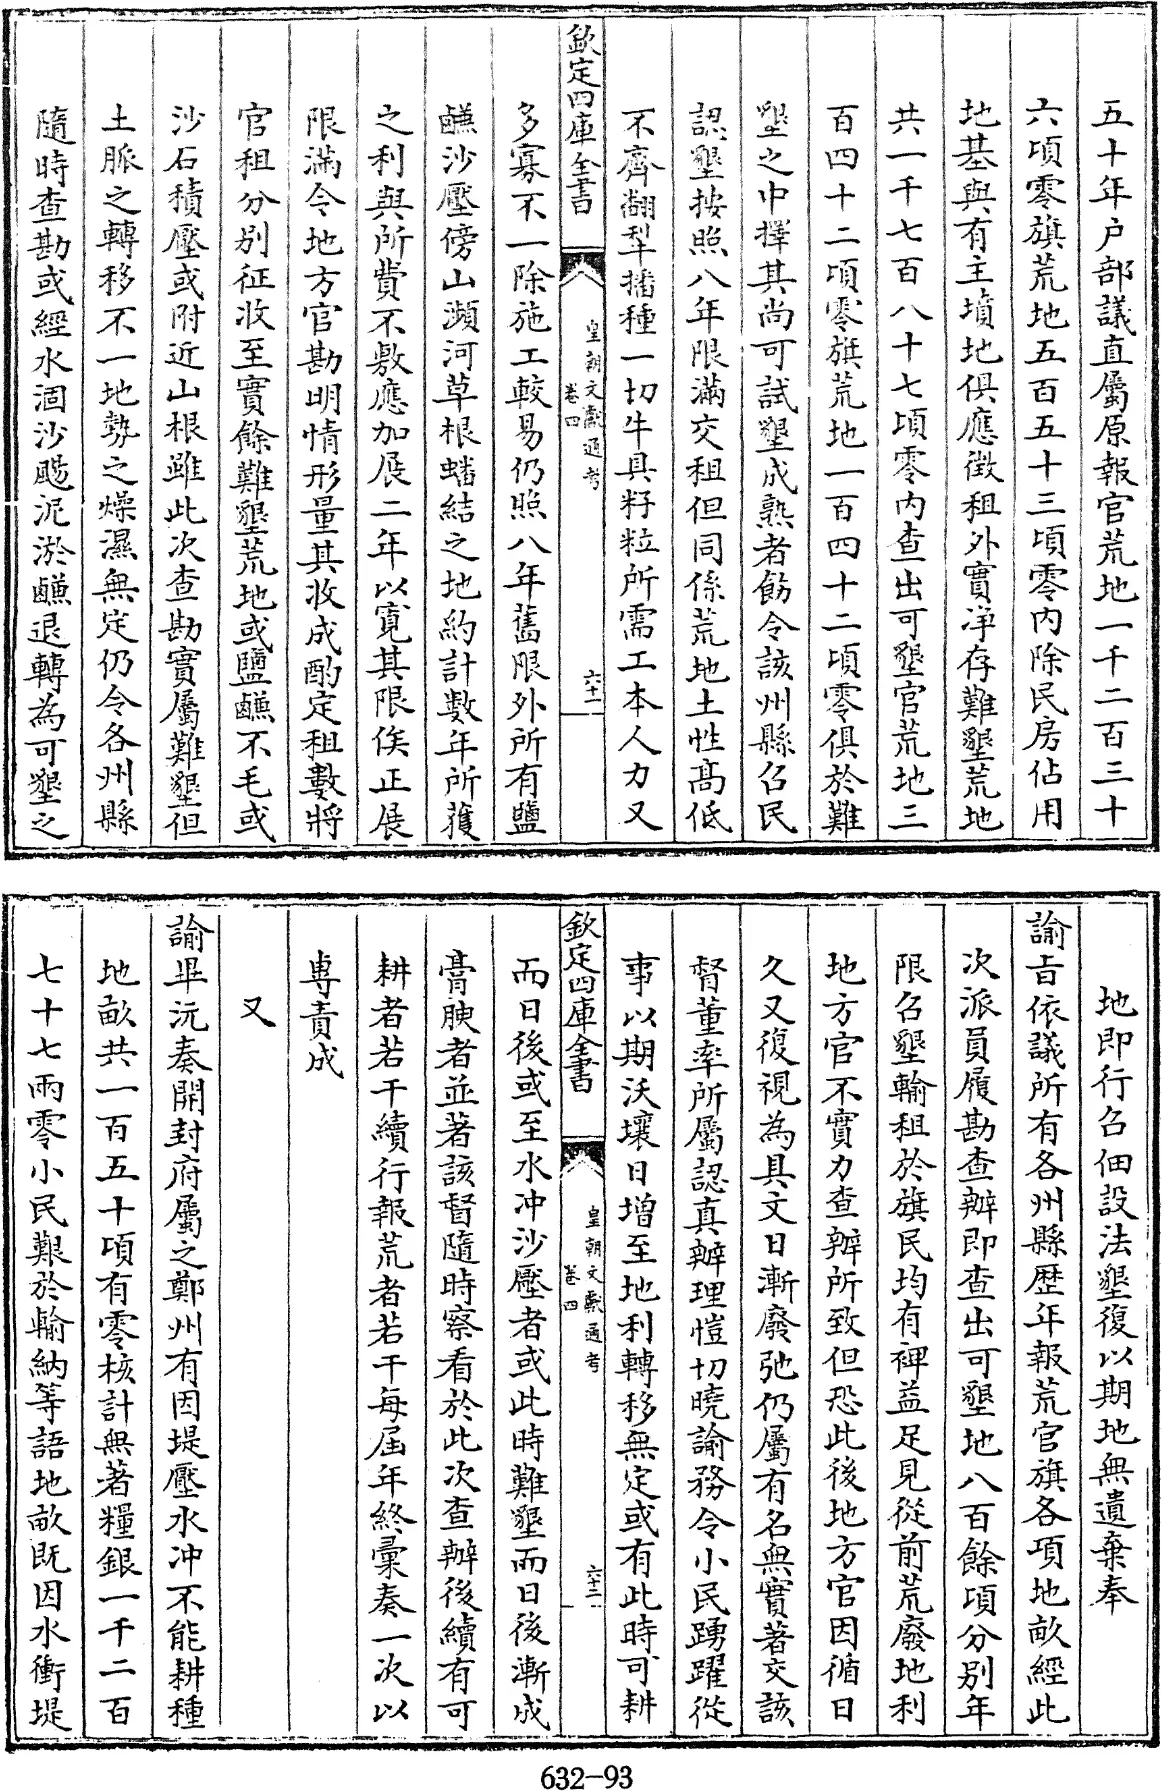 五十年户部議直屬原報官荒地一千二百三十
六頃零旗荒地五百五十三頃零内除民房佔用
地基與有主墳地俱應徵租外實净存難墾荒地
共一千七百八十七頃零内查出可墾官荒地三
百四十二頃零旗荒地一百四十二頃零俱於難
墾之中擇其尚可試墾成熟者飭令該州縣召民
認墾按照八年限滿交租但同係荒地土性髙低
不齊翻犁播種一切牛具籽粒所需工本人力又
欽定四庫全書
皇朝文獻通考
卷四
六十二
多寡不一除施工較易仍照八年舊限外所有鹽
鹻沙壓傍山瀕河草根蟠結之地約計數年所獲
之利與所費不敷應加展二年以寛其限俟正展
限滿令地方官勘明情形量其收成酌定租數將
官租分别征收至實餘難墾荒地或鹽鹻不毛或
沙石積壓或附近山根雖此次查勘實屬難墾但
土脈之轉移不一地勢之燥濕無定仍令各州縣
隨時查勘或經水涸沙颺泥淤鹻退轉為可墾之
地即行召佃設法墾復以期地無遺棄奉
諭旨依議所有各州縣歴年報荒官旗各項地畝經此
次派員履勘查辦即查出可墾地八百餘頃分别年
限召墾輸租於旗民均有裨益足見從前荒廢地利
地方官不實力查辦所致但恐此後地方官因循日
久又復視為具文日漸廢弛仍屬有名無實著交該
督董率所屬認真辦理愷切曉諭務令小民踴躍從
事以期沃壤日增至地利轉移無定或有此時可耕
欽定四庫全書
皇朝文獻通考
卷四
六十三
而日後或至水冲沙壓者或此時難墾而日後漸成
膏腴者並著該督隨時察看於此次查辦後續有可
耕者若干續行報荒者若干每届年終彚奏一次以
專責成
又
諭畢沅奏開封府屬之鄭州有因堤壓水冲不能耕種
地畝共一百五十頃有零核計無著糧銀一千二百
七十七兩零小民艱於輸納等語地畝既因水衝堤
632-93